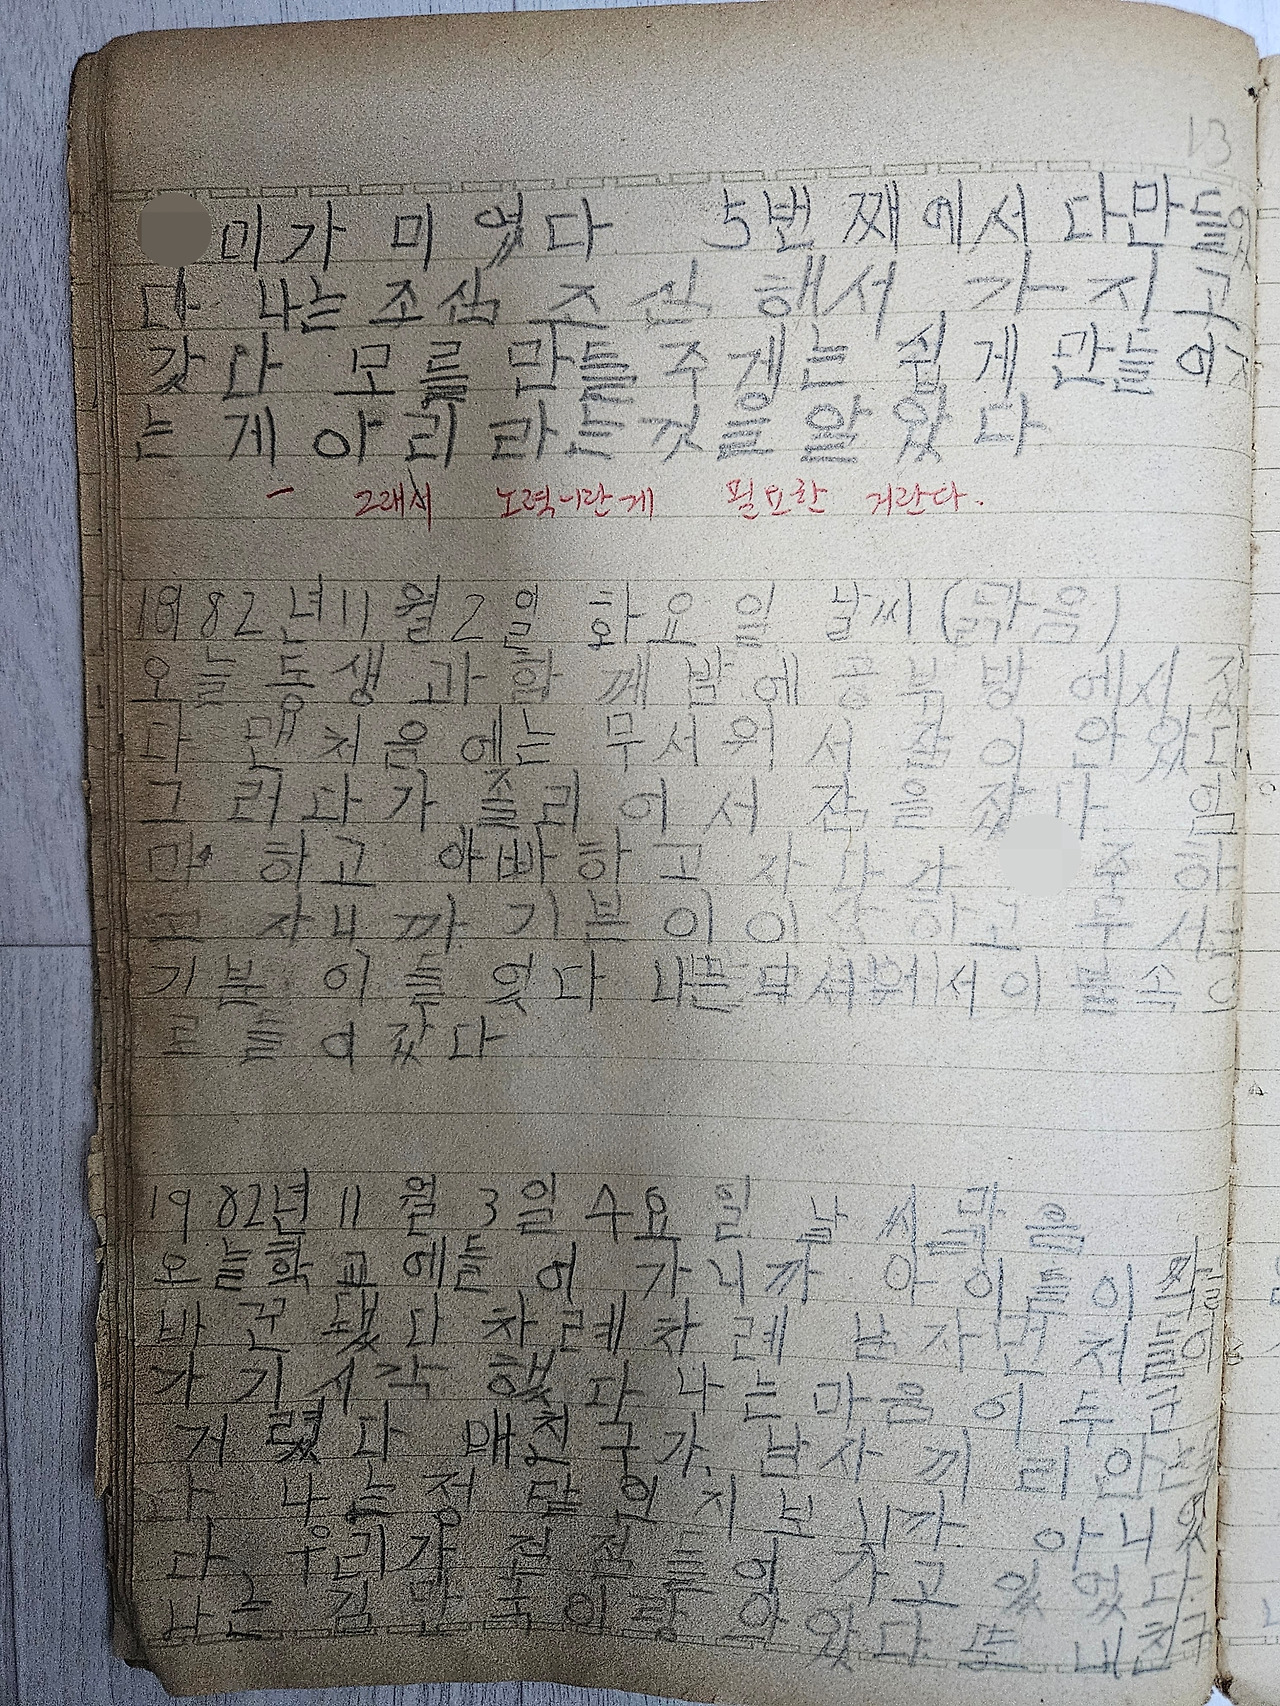 13
미가 미 엇다 5번 째에서 다만들엇
다 나는 조심 조심 해서 가지고
갓아 모를 만들 주겜는 쉽게 만들어지
는 게 아리 라는것을 알 았 다
- 그래서 노력이란게 필요한 거란다.
1982년 11월 2일 화요일 날씨 (맑음)
오늘 동생과 함께 밤에 공부 방에서
다 맨 처음에는 무서워서 잠이 안 왔다
그러다가 졸리어서 잠을 잤다
마 하고 아빠하고 자다가 하
고 자니까 기분이 이상 하고 무서운
기분 이 들 었다 서 이불 속으
로 들어 갔다
1982년 11월 3일 수요일 날씨 맑음
오늘학교에들어 가니까 아이들이 짝을
바꾼 됐다 차례차례 남자번저들어
가기시작 했다 나는 마음이 두근
거렸다 내친구가. 남자끼리안
다 나는정말인지보니까 아니엇
다 우리가 점점 들어가고 있었다.
나는 김 이랑 앉았다. 또 내친구